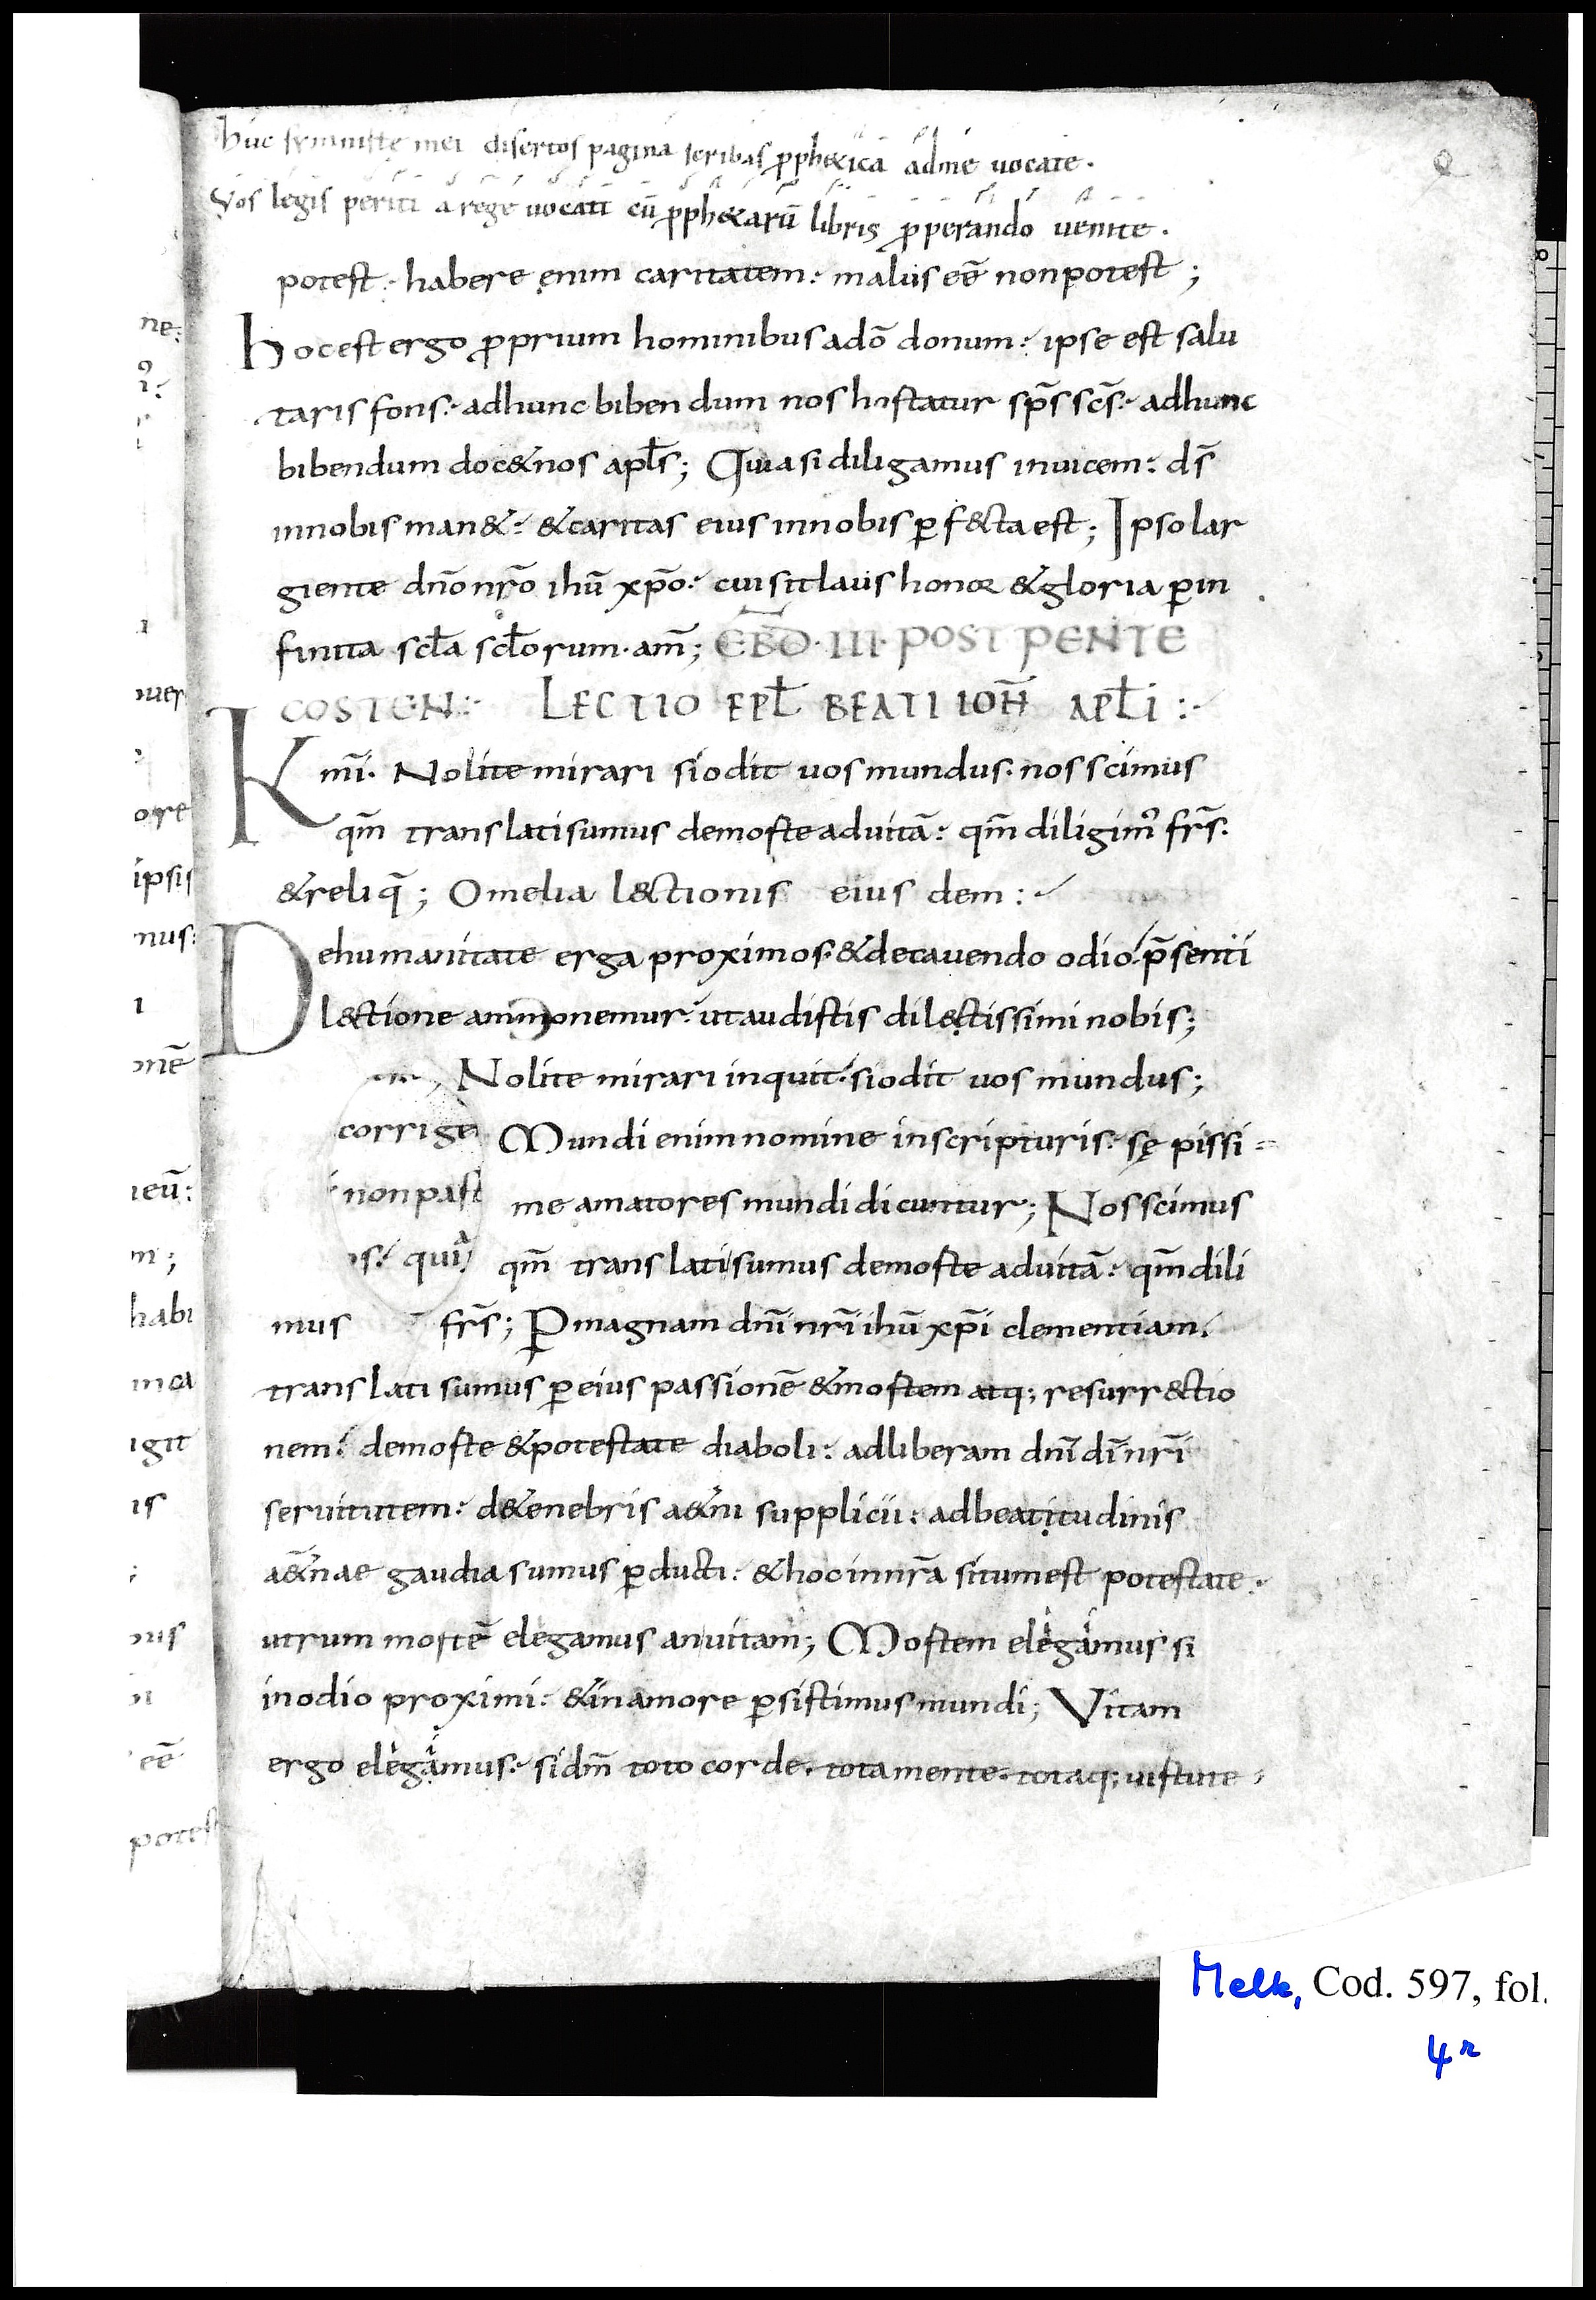 huc symmistę mei disertos pagina scribas ꝓph&ica adme uocate.
Vos legis periti a rege uocati cū ꝓph&arū libris ꝓperando uenite.
potest. habere enim caritatem: malus eē nonpotest;
hocestergo ꝓprium hominibus adō donum: ipse est salu
taris fons. adhunc biben dum nos hortatur sp̄s sc̄s. adhunc
bibendum doc& nos apl̄s; Quia si diligamus inuicem: ds̄
innobis man&: &caritas eius innobis ꝑf&cta est; Ipso lar
giente dn̄o nr̄o ihū xp̄o. cui sit laus honor &gloria ꝑ in
finita scl̄a scl̄orum. am̄; EBD̄. III. POST PENTE
COSTEN: LECTIO EPL̄ BEATI IOH̄ APL̄I:
Kmī. Nolite mirari si odit uos mundus. nos scimus
qm̄ trans lati sumus demorte aduitā: qm̄ diligim᾽ fr̄s.
&reliq̄; Omelia l&ctionis eius dem:
Dehumanitate erga proximos. &decauendo odio. p̄senti
l&ctione ammonemur. utaudistis dil&ctissimi nobis;
Nolite mirari inquit. si odit uos mundus;
corrige Mundi enim nomine inscripturis. sę pissi
non past me amatores mundi dicuntur; Nos scimus
s. qui qm̄ trans lati sumus demorte aduitā: qm̄ dili
mus fr̄s; Ꝑ magnam dn̄i nr̄i ihū xp̄i clementiam.
trans lati sumus ꝑ eius passionē &mortem atq; resurr&ctio
nem. demorte &potestate diaboli: adliberam dn̄i dī nr̄i
seruitutem: d&enebris a&ni supplicii: adbeatitudinis
a&̄nae gaudia sumus ꝑducti: &hoc innr̄a situm est potestate.
utrum mortē elegamus anuitam; Mortem elegamus si
inodio proximi: &inamore ꝑsistimus mundi; Vitam
ergo elegamus. si dm̄ toto corde. tota mente. totaq; uirtute
ne:
i
uer
ore
ipsis
mus:
i
onē
ieū:
m;
habi
igit
is
eē
potest
Melk, Cod. 597, fol.
4r